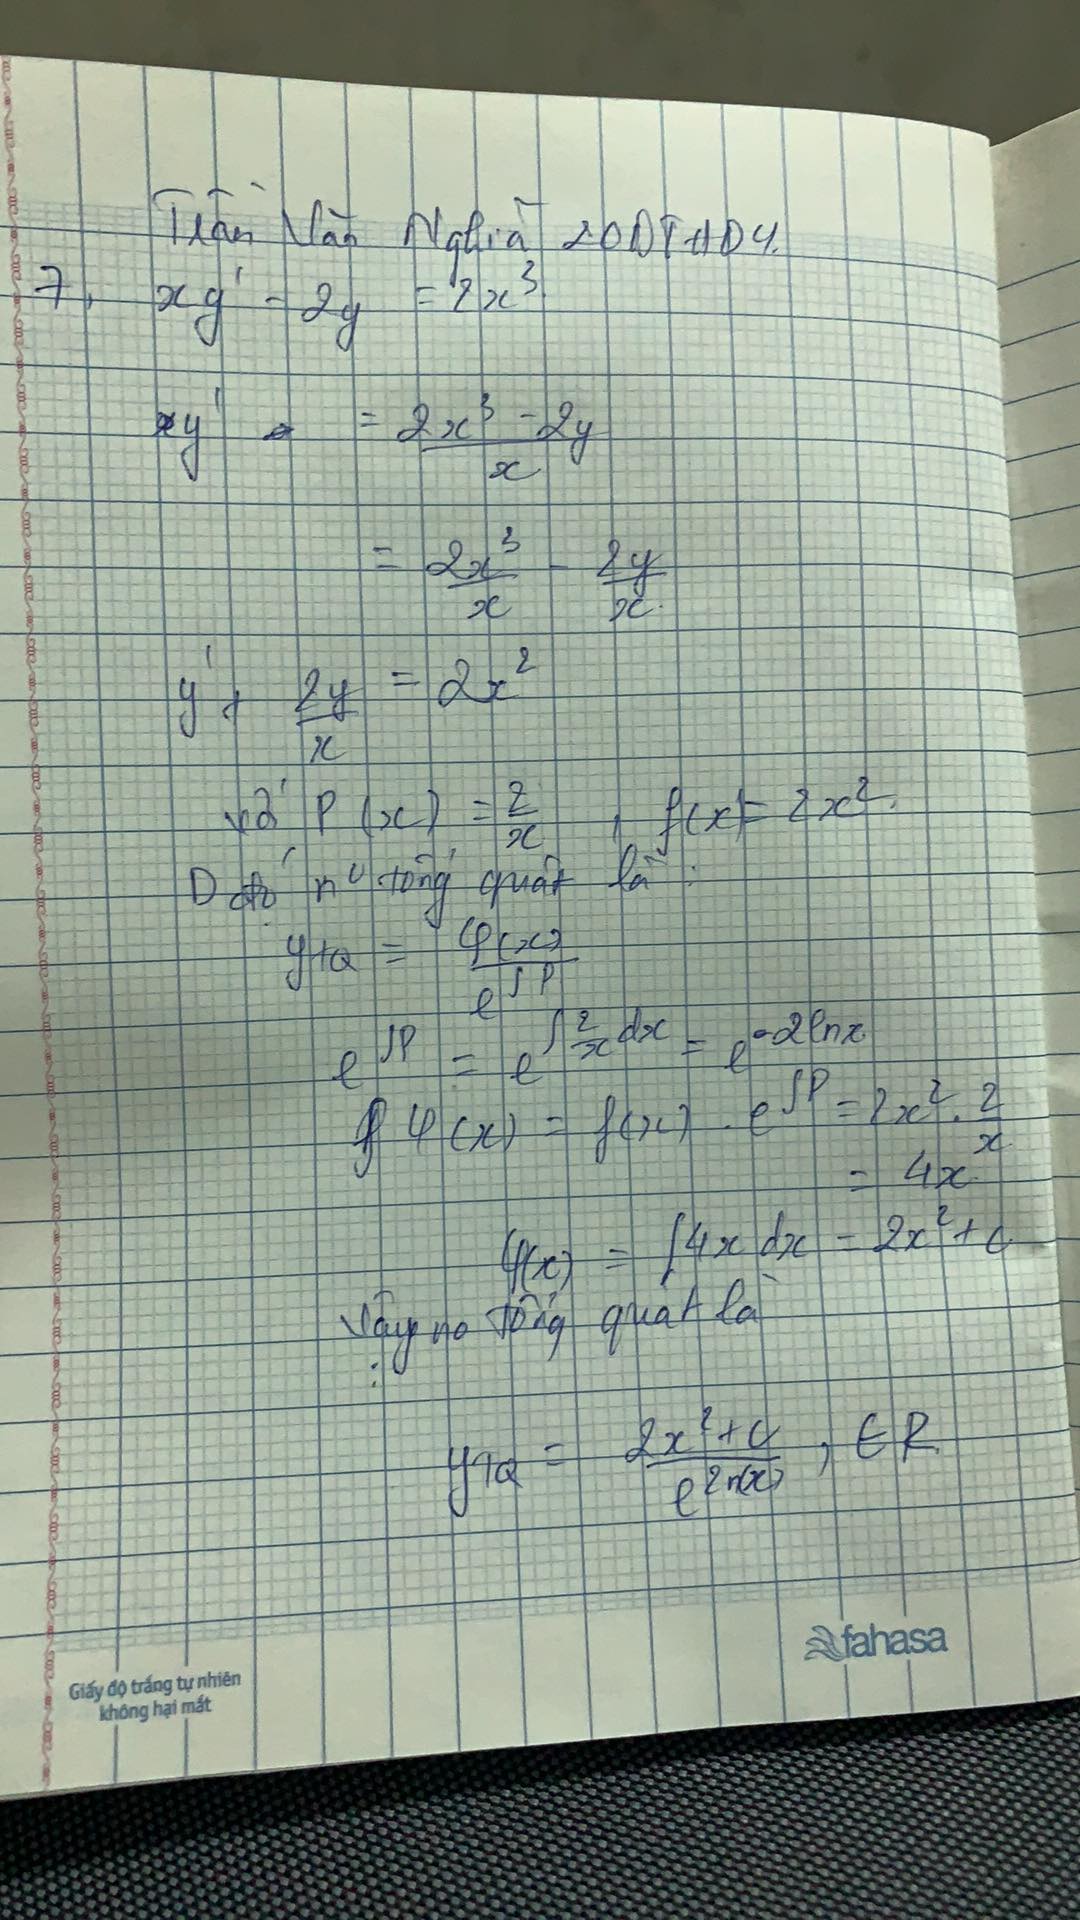 Trần Văn Nghĩa 20DTHD4.
7, xy' - 2y = 2x³
xy' = (2x³ - 2y)/x
= 2x³/x - 2y/x
y' + 2y/x = 2x²
với P(x) = 2/x , f(x) = 2x².
Do đó n⁰ tổng quát là :
yTQ = φ(x)/e^∫P
e^∫P = e^∫2/x dx = e^-2lnx
φ'(x) = f(x) . e^∫P = 2x² . 2/x
= 4x
φ(x) = ∫4x dx = 2x² + c
Vậy no tổng quát là
:
yTQ = (2x² + c)/e^2ln(x) , ∈ R
fahasa
Giấy độ trắng tự nhiên
không hại mắt